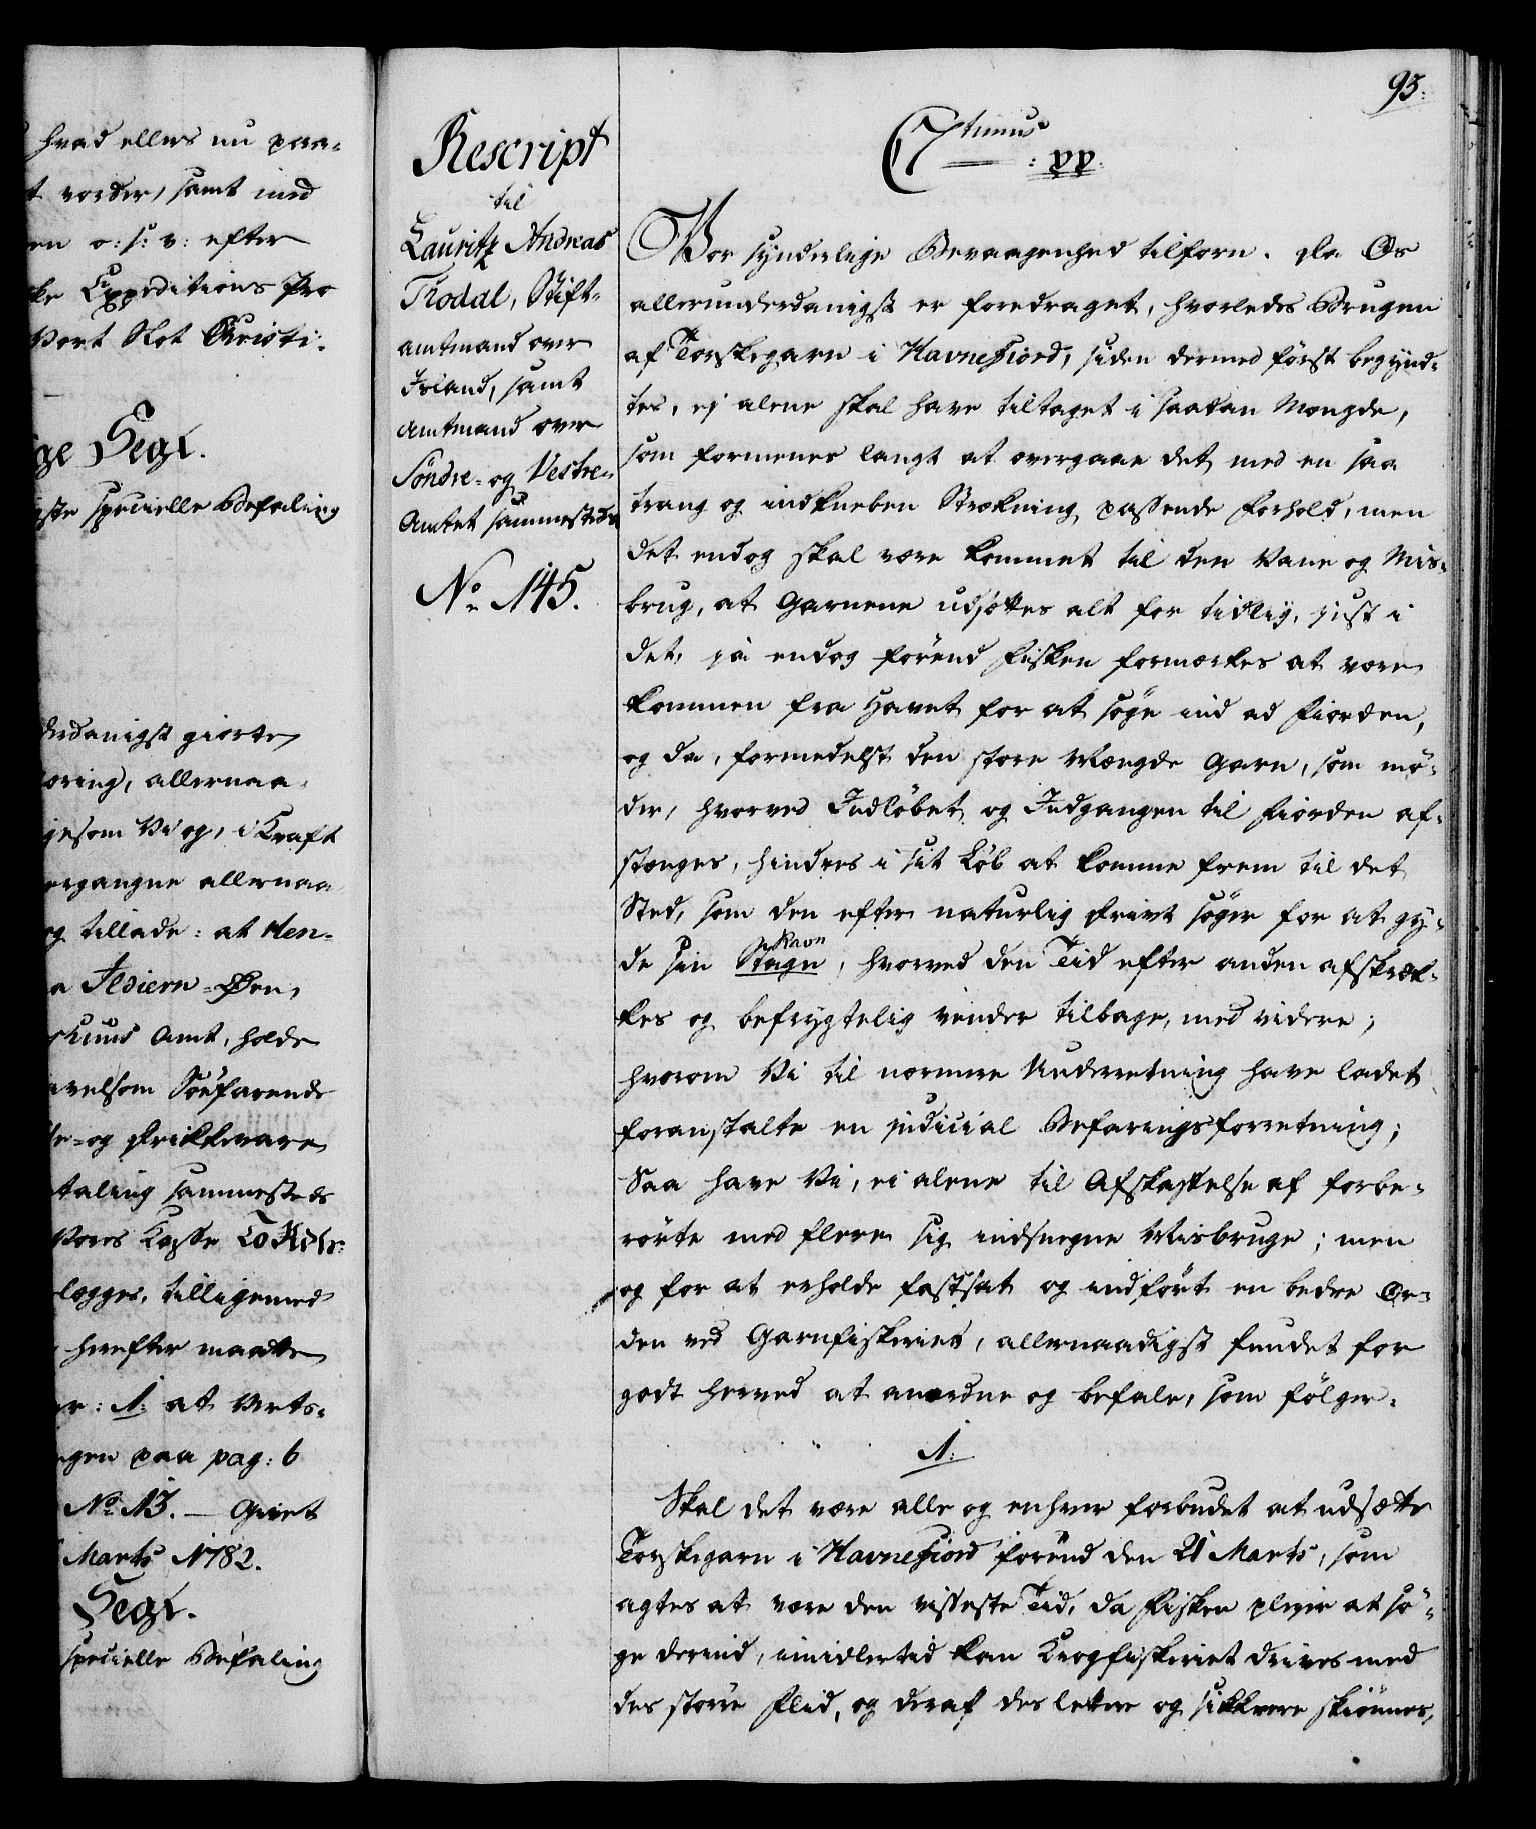 hvad ellers nu paa-
vorder, samt med
en o: s: v: efter
ke Expeditions Pro
Vort Slot Christi-
ge Segl.
gste specielle Befaling
derdanigst giorte
æring, allernaa-
gesom Vi og, i Kraft
ergangne allernaa
og tillade: at Hen-
a Ildjern-Øen,
shuus Amt, holde
velsom Søefarende
te- og Drikkevare
taling sammesteds
Vores Kasse 20 Rdlr:
legges, tilligemed
herefter maatte
er: 1: at Verts-
gen paa pag: 6
No. 13. — Givet
Marts 1782.
Segl.
specielle Befaling
93.
Rescript
til
Lauritz Andreas
Thodal, Stift-
amtmand over
Island, samt
Amtmand over
Söndre- og Vestre-
Amtet sammesteds
No. 145.
C 7timus
: pp.
Vor synderlige Bevaagenhed tilforn. Da Os
allerunderdanigst er foredraget, hvorledes Brugen
af Torskegarn i Havnefiord, siden dermed først begynd-
tes, ej alene skal have tiltaget i saadan Mængde,
som formenes langt at overgaae det med en saa
trang og indkneben Strekning passende Forhold, men
det endog skal være kommet til den Vane og Mis-
brug, at Garnene udsættes alt for tidlig, just i
det, ja endog førend Fisken formærkes at være
kommen fra Havet for at søge ind ad Fiorden,
og da, formedelst den store Mængde Garn, som mø-
der, hvorved Indløbet og Indgangen til Fiorden af-
stænges, hindres i sit Løb at komme frem til det
Sted, som den efter naturlig Drivt søger for at gy-
de sin Stagn, hvorved den Tid efter anden afskræk-
Ravn
kes og befrygtelig vender tilbage, med videre;
hvorom Vi til nærmere Underretning have ladet
foranstalte en judicial Befaringsforretning;
Saa have Vi, ei alene til Afskaffelse af forbe-
rørte med flere sig indsnegne Misbruge; men
og for at erholde fastsat og indført en bedre Or-
den ved Garnfiskeriet, allernaadigst fundet for
godt herved at anordne og befale, som følger.
1.
Skal det være alle og enhver forbudet at udsætte
Torskegarn i Havnefiord førend den 21 Marts, som
agtes at være den visseste Tid, da Fisken pleier at sø-
ge derind, imidlertid kan Krogfiskeriet drives med
des større Flid, og deraf des lettere og sikkrere skiønnes,